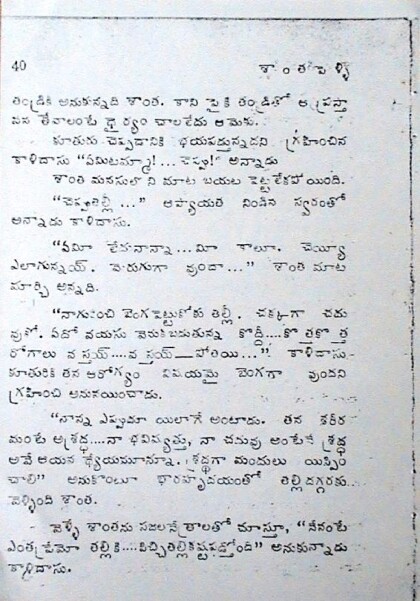 40
శాంత పెళ్ళి
తండ్రికి అనుకున్నది శాంత. కాని పైకి తండ్రితో ఆ ప్రస్తా
వన తేవాలంటే ధైర్యం చాలలేదు ఆమెకు.
కూతురు చెప్పడానికి భయపడ్తున్నదని గ్రహించిన
కాళిదాసు "ఏమిటమ్మా!... చెప్పు!" అన్నాడు
శాంతి మనసులోని మాట బయట పెట్టలేకపోయింది.
"చెప్పుతల్లీ..." ఆప్యాయత నిండిన స్వరంతో
అన్నాడు కాళిదాసు.
"ఏమీ లేదునాన్నా...మీ కాలూ. చెయ్యీ
ఎలాగున్నయ్. మెరుగుగా వుందా..." శాంతి మాట
మార్చి అన్నది.
"నాగురించి బెంగపెట్టుకోకు తల్లీ. చక్కగా చదు
వుకో. ఏదో వయసు వెనుకబడుతున్న కొద్దీ....కొత్తకొత్త
రోగాలు వస్తయ్....వస్తయ్—పోతయి...." కాళిదాసు
కూతురికి తన ఆరోగ్యం విషయమై బెంగగా వుందని
గ్రహించి అనునయించాడు.
"నాన్న ఎప్పుడూ యిలాగే అంటాడు. తన శరీర
మంటే అశ్రద్ధ....నా భవిష్యత్తు, నా చదువు అంటేనే శ్రద్ధ
అవే ఆయన ధ్యేయమూన్నూ. శ్రద్ధగా మందులు యిప్పిం
చాలి" అనుకొంటూ భారహృదయంతో తల్లిదగ్గరకు
వెళ్ళింది శాంత.
వెళ్ళే శాంతను సజలనేత్రాలతో చూస్తూ, "నేనంటే
ఎంతప్రేమో తల్లికి....పిచ్చితల్లికష్టపడ్తోంది" అనుకున్నాడు
కాళిదాసు.